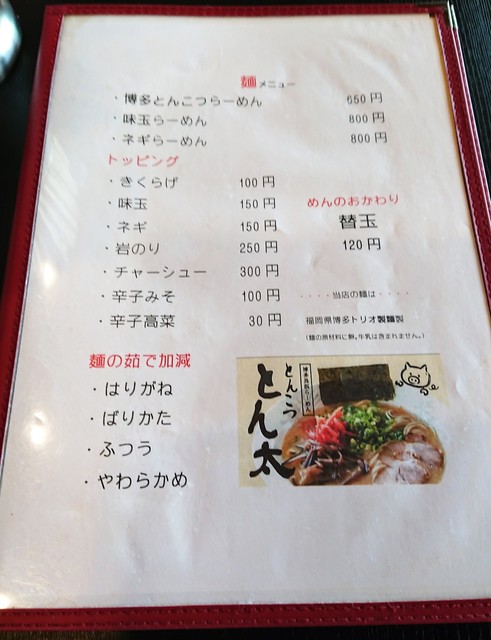 麺メニュー
・博多とんこつらーめん 650円
・味玉らーめん 800円
・ネギらーめん 800円
トッピング
・きくらげ 100円
・味玉 150円
・ネギ 150円
・岩のり 250円
・チャーシュー 300円
・辛子みそ 100円
・辛子高菜 30円
めんのおかわり
替玉
120円
・・・・当店の麺は・・・・
福岡県博多トリオ製麺製
(麺の原材料に卵、牛乳は含まれません。)
麺の茹で加減
・はりがね
・ばりかた
・ふつう
・やわらかめ
とんこつ
とん太